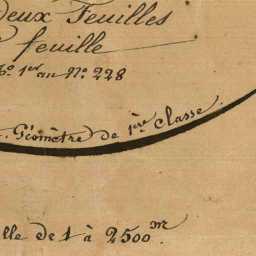 deux Feuilles
feuille
No. 1er au No. 228
Géomètre de 1ère classe.
lle de 1 à 2500m.